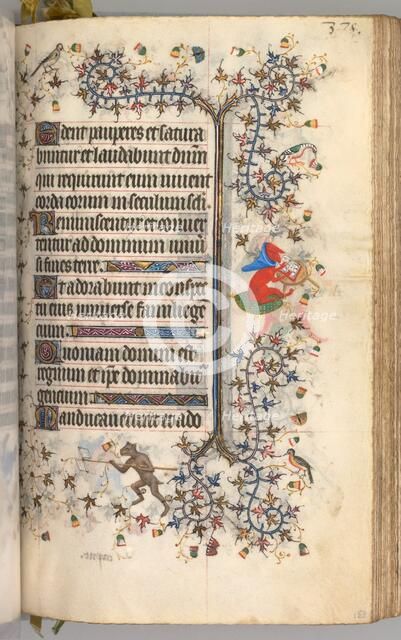 378.
Edent pauperes et satura
buntur et laudabunt dnm
qui requirunt eum vivent
corda eorum in seculum seli.
Reminiscentur et conver
tentur ad dominum univ
si fines terre.
Et adorabunt in conspec
tu eius universe familie ge
cium.
Quoniam domini est
regnum et ipse dominabit
gencium.
Manducaverunt et ado
Heritage